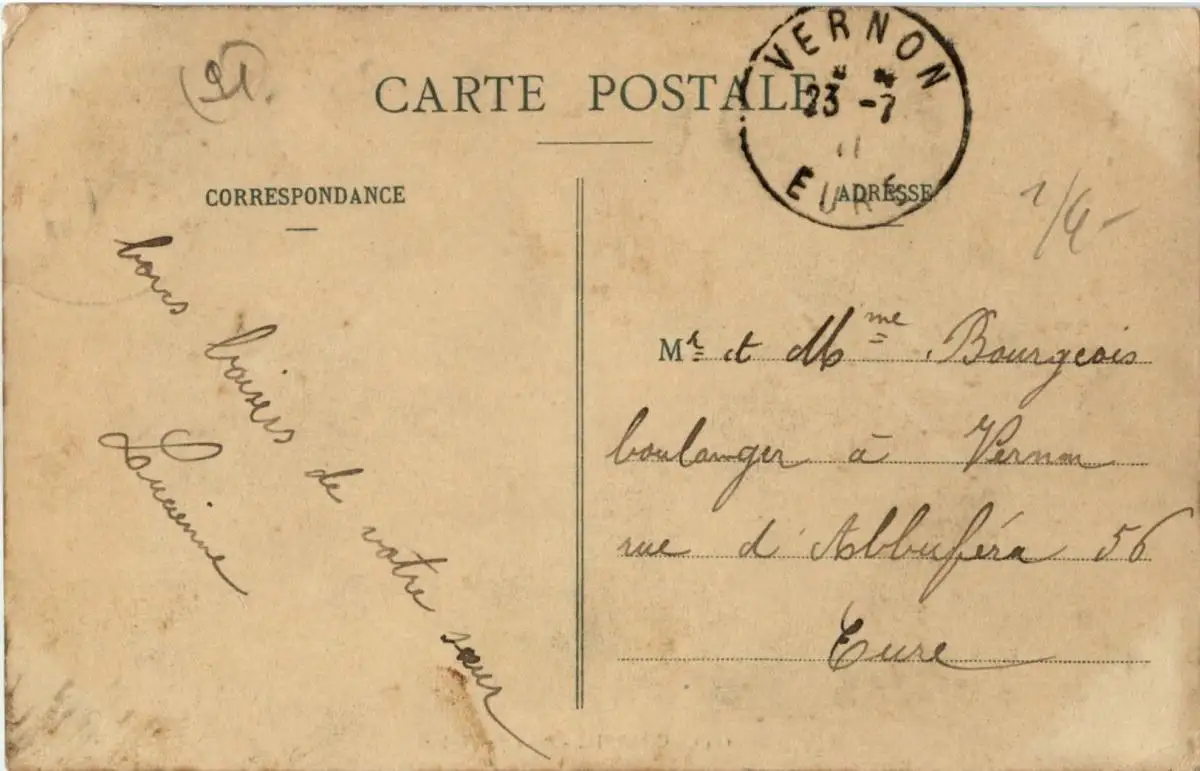 CARTE POSTALE
VERNON
23 -7
11
EURE
CORRESPONDANCE
ADRESSE
bons baisers de votre sœur
Lucienne
Mr et Mme Bourgeois
boulanger à Vernon
rue d'Abbuféra 56
Eure